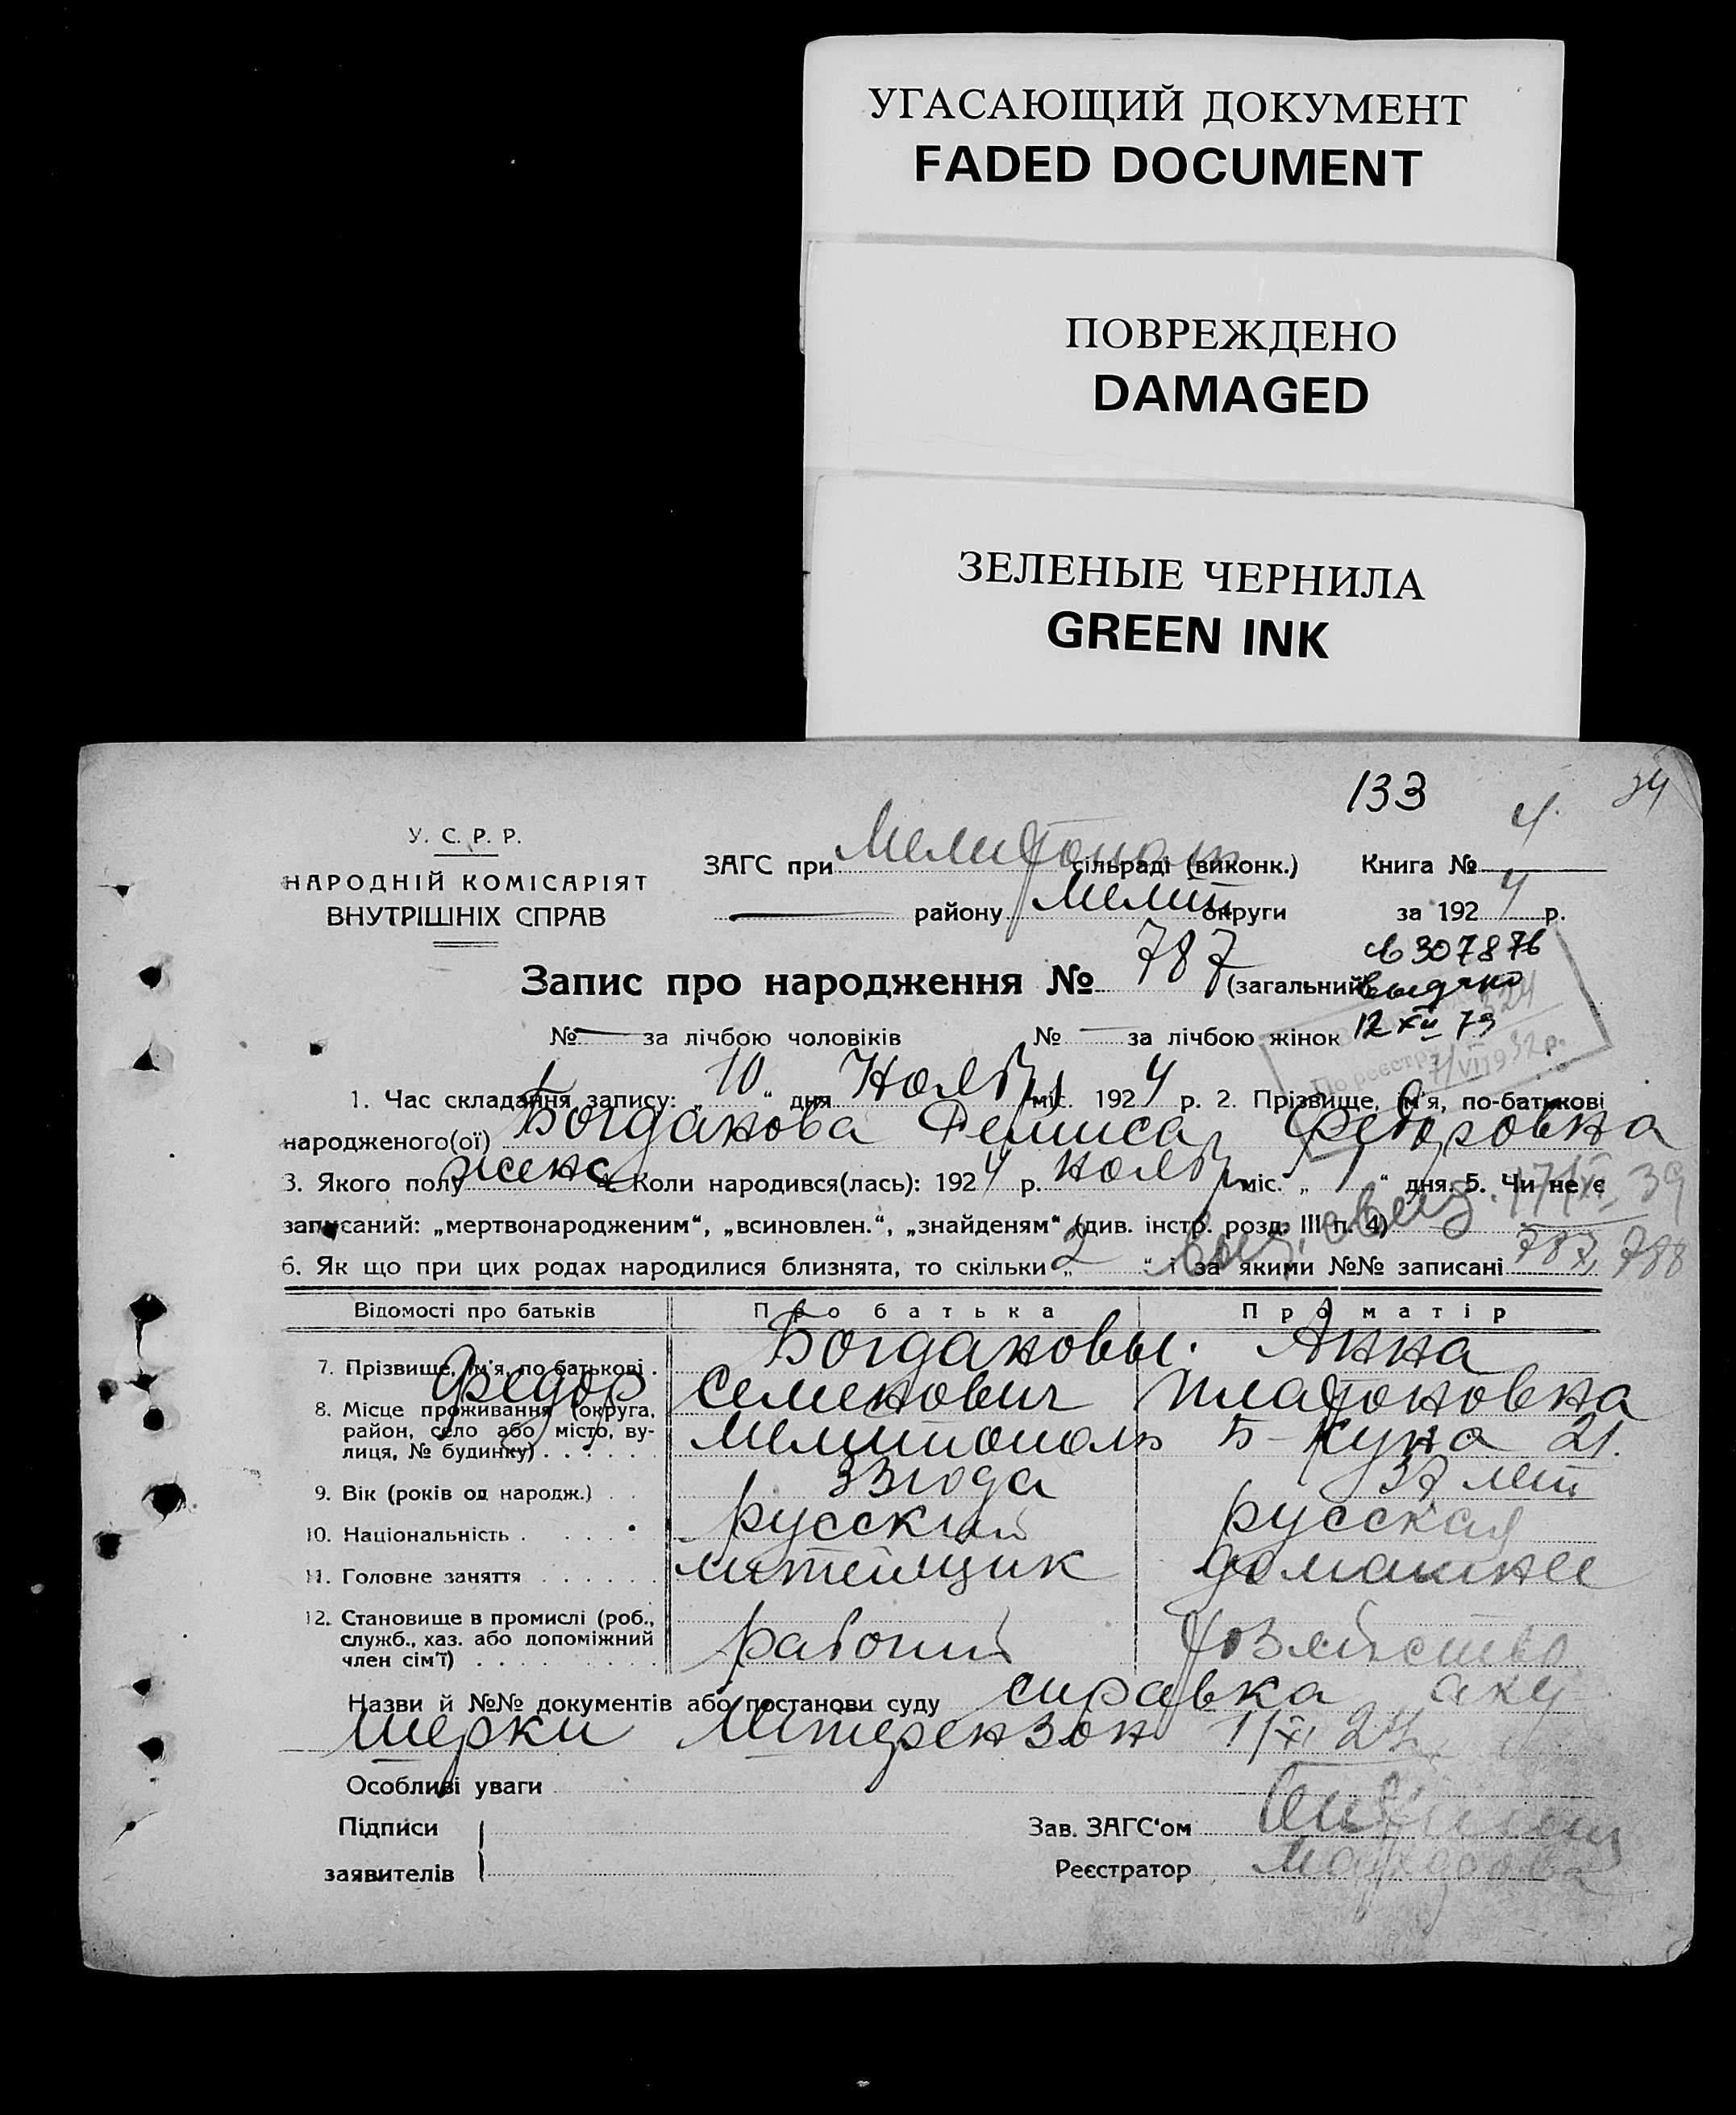 УГАСАЮЩИЙ ДОКУМЕНТ
FADED DOCUMENT
ПОВРЕЖДЕНО
DAMAGED
ЗЕЛЕНЫЕ ЧЕРНИЛА
GREEN INK
133
34
У. С. Р. Р.
НАРОДНІЙ КОМІСАРІЯТ
ВНУТРІШНІХ СПРАВ
ЗАГС при Мелитополь сільраді (виконк.) Книга № 4.
району Мелит округи за 1924 р.
307876
Запис про народження № 787 (загальний)
выдано
№ — за лічбою чоловіків № — за лічбою жінок
12 XII 79
По реєстру
7/VII 1932 р.
1. Час складання запису: „10“ дня Ноября міс. 1924 р. 2. Прізвище, ім'я, по-батькові
народженого(ої) Богданова Федоровна
3. Якого полу женс 4. Коли народився(лась): 1924 р. ноября міс. „1“ дня. 5. Чи не є
записаний: „мертвонародженим“, „всиновлен.“, „знайденям“ (див. інстр. розд. III п. 4)
17/XI 39
6. Як що при цих родах народилися близнята, то скільки „2“ і за якими №№ записані 787, 788
Відомості про батьків Про батька Про матір
7. Прізвище, ім'я, по батькові . Богдановы. Анна
Федор Семенович Платоновна
8. Місце проживання (округа, район, село або місто, вулиця, № будинку) . . . . . . Мелитополь Б-Куна 21.
9. Вік (років од народж.) . . 33 года 37 лет
10. Національність . . . . . русский русская
11. Головне заняття . . . . . . литейщик домашнее
12. Становище в промислі (роб., служб., хаз. або допоміжний член сім'ї) . . . . . . . . . рабочий хозяйство
Назви й №№ документів або постанови суду справка аку
шерки 1/XI 24
Особливі уваги
Підписи
заявителів
Зав. ЗАГС'ом
Реєстратор